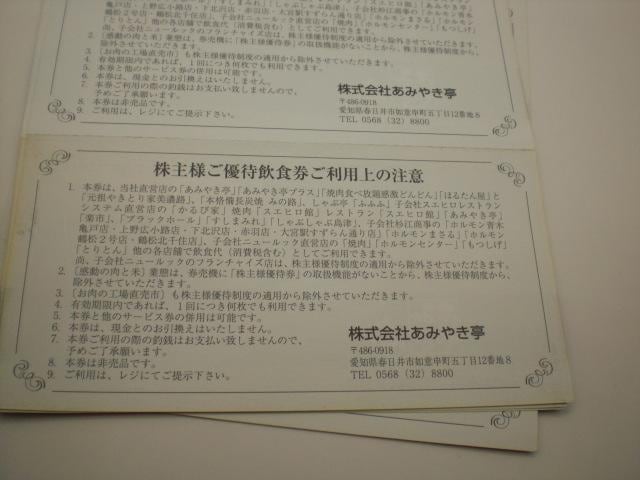 とりとん」他の各店舗で飲食代（消費税含む）としてご利用できます。
2.〔感動の肉と米〕業態は、券売機に「株主様優待券」の取扱機能がないことから、株主様優待制度から、
除外させていただきます。
3.〔お肉の工場直売市〕も株主様優待制度の適用から除外させていただきます。
4. 有効期限内であれば、1回につき何枚でも利用できます。
5. 本券と他のサービス券の併用は可能です。
6. 本券は、現金とのお引換えはいたしません。
7. 本券ご利用の際の釣銭はお支払い致しませんので、
予めご了承願います。
8. 本券は非売品です。
9. ご利用は、レジにてご提示下さい。
株式会社あみやき亭
〒486-0918
愛知県春日井市如意申町五丁目12番地8
TEL 0568（32）8800
株主様ご優待飲食券ご利用上の注意
1. 本券は、当社直営店の「あみやき亭」「あみやき亭プラス」「焼肉食べ放題感激どんどん」「ほるたん屋」と
「元祖やきとり家美濃路」、「本格備長炭焼 みの路」、しゃぶ亭「ふふふ」子会社スエヒロレストラン
システム直営店の「かるび家」焼肉「スエヒロ館」レストラン「スエヒロ館」「あみやき亭」
「楽市」、「ブラックホール」「すしまみれ」「しゃぶしゃぶ島津」、子会社杉江商事の「ホルモン青木
亀戸店・上野広小路店・下北沢店・赤羽店・大宮駅すずらん通り店」「ホルモンまさる」「ホルモン
鶴松2号店・鶴松北千住店」、子会社ニュールック直営店の「焼肉」「ホルモンセンター」「もつしげ」
「とりとん」他の各店舗で飲食代（消費税含む）としてご利用できます。
尚、子会社ニュールックのフランチャイズ店は、株主様優待制度の適用から除外させていただきます。
2.〔感動の肉と米〕業態は、券売機に「株主様優待券」の取扱機能がないことから、株主様優待制度から、
除外させていただきます。
3.〔お肉の工場直売市〕も株主様優待制度の適用から除外させていただきます。
4. 有効期限内であれば、1回につき何枚でも利用できます。
5. 本券と他のサービス券の併用は可能です。
6. 本券は、現金とのお引換えはいたしません。
7. 本券ご利用の際の釣銭はお支払い致しませんので、
予めご了承願います。
8. 本券は非売品です。
9. ご利用は、レジにてご提示下さい。
株式会社あみやき亭
〒486-0918
愛知県春日井市如意申町五丁目12番地8
TEL 0568（32）8800